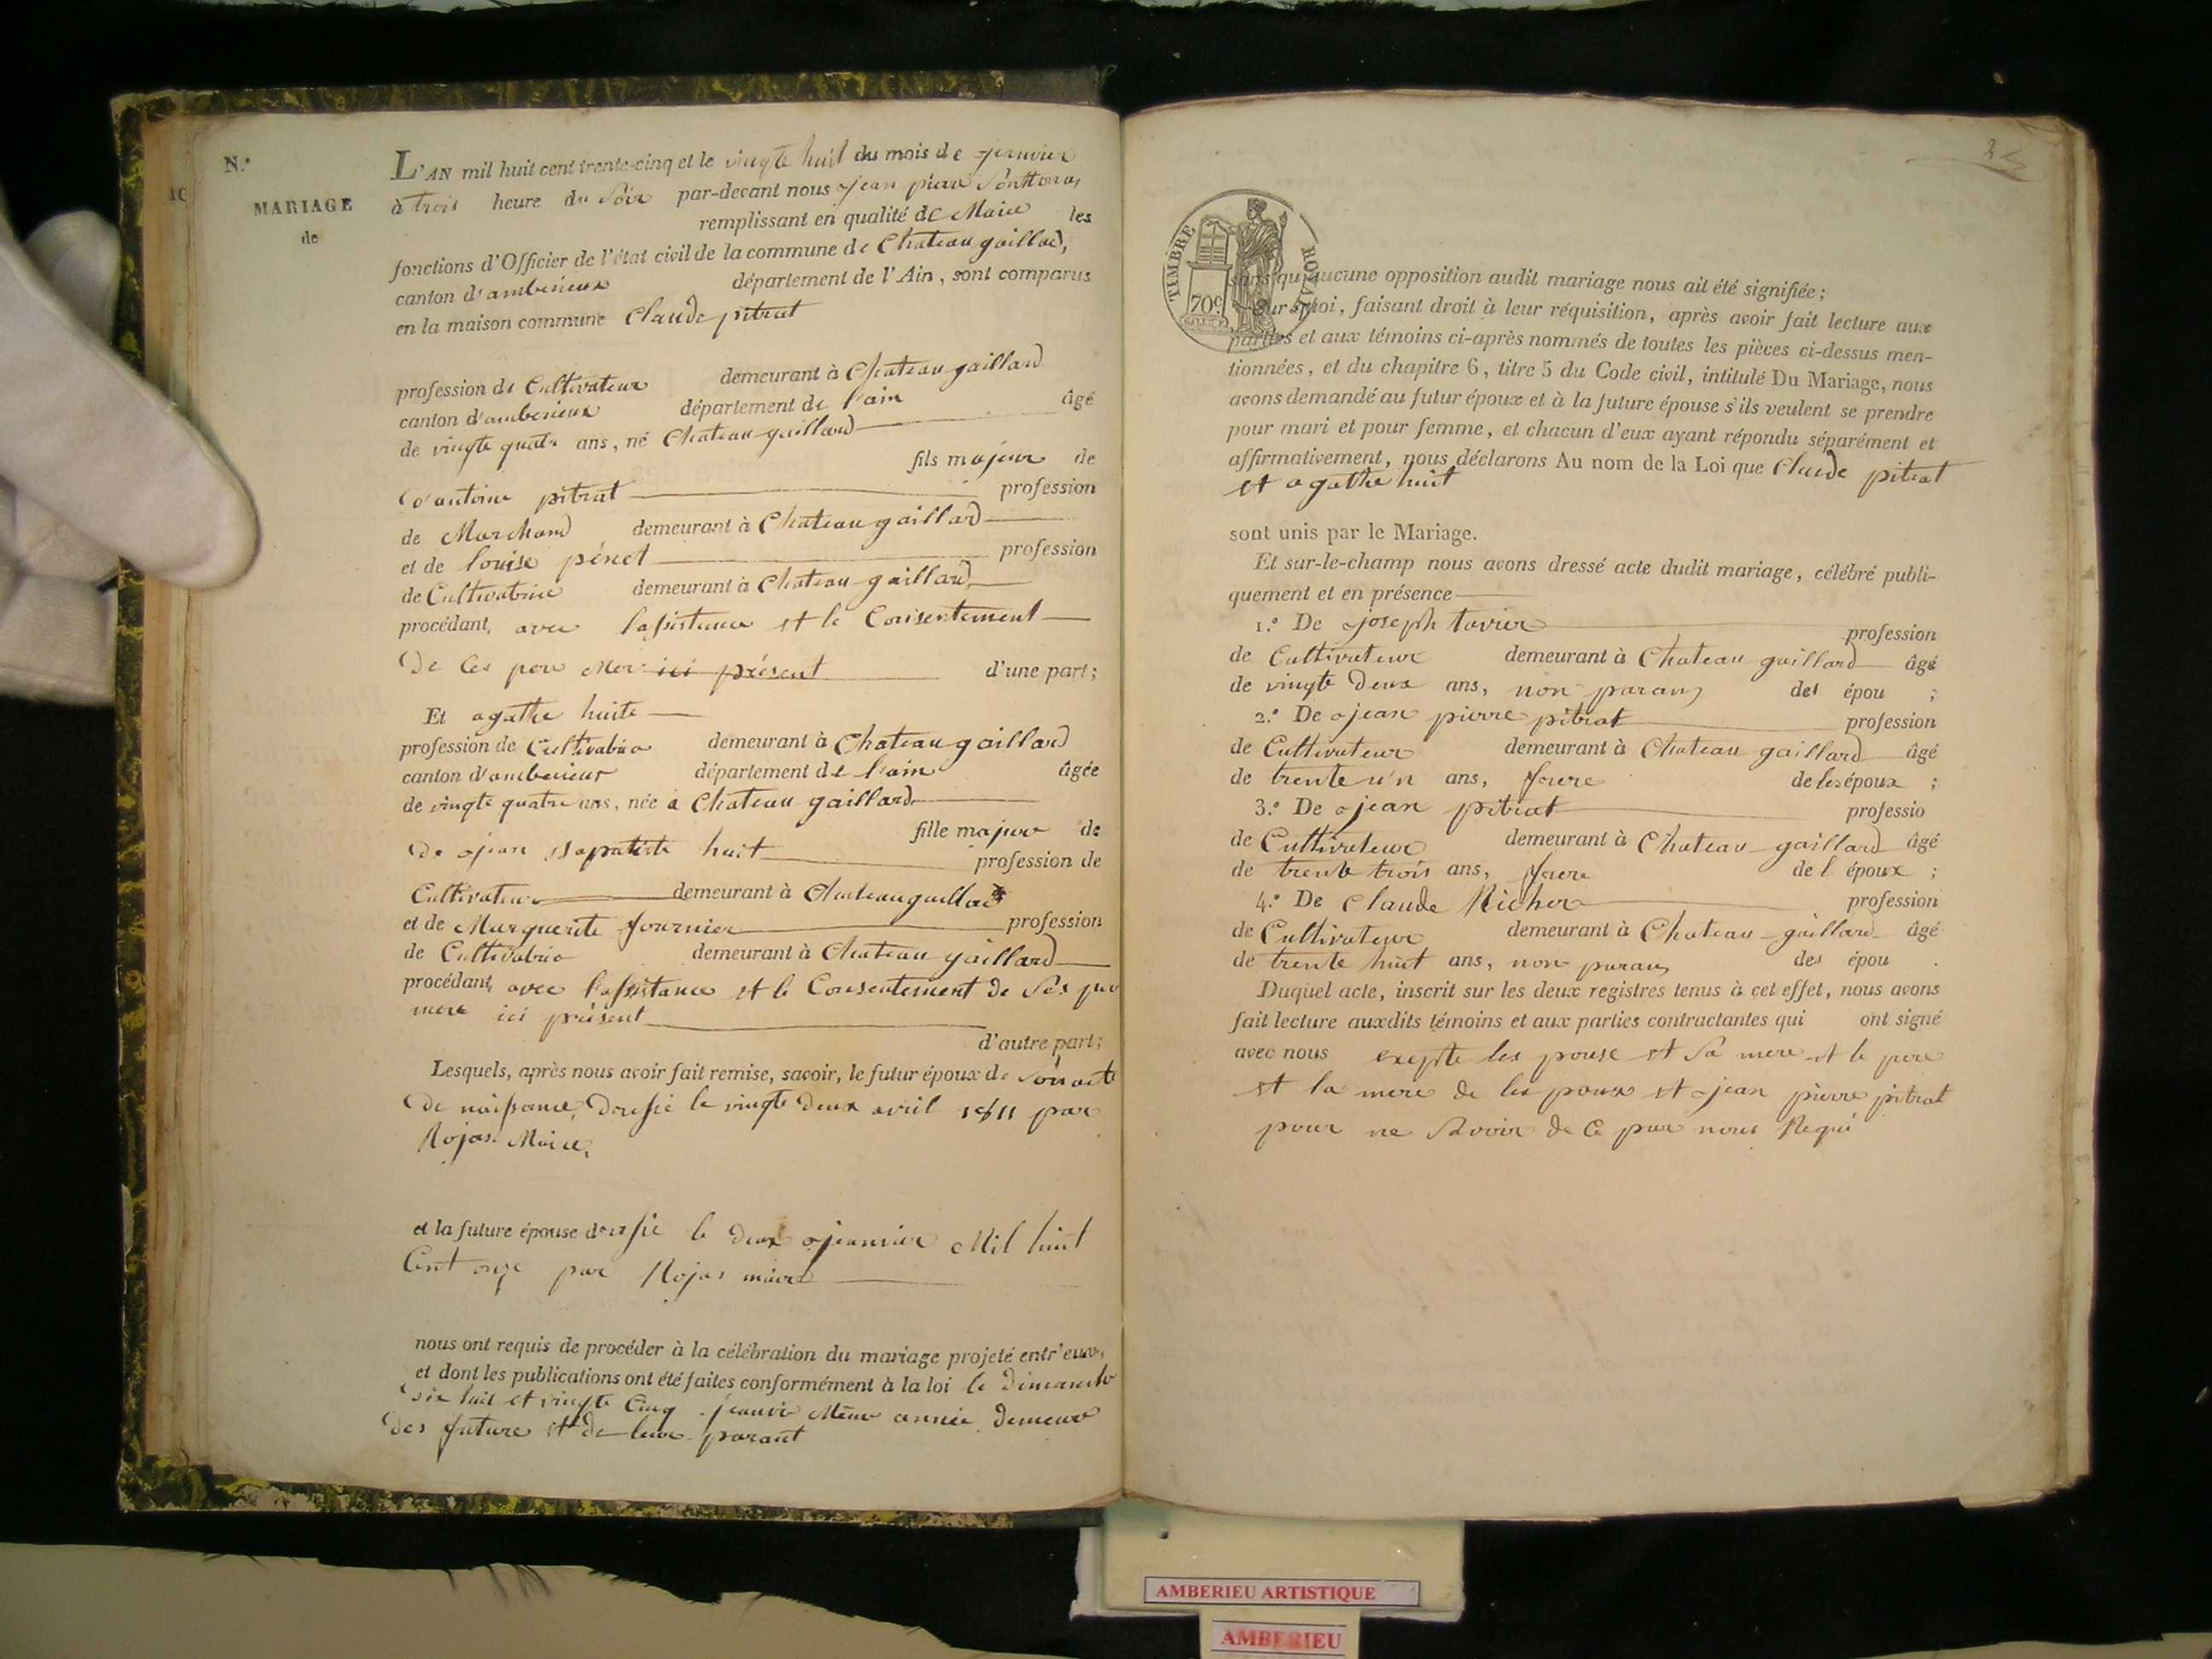 N.°
MARIAGE
de
L'AN mil huit cent trente-cinq et le vingte huit du mois de Jenvier
à trois heure du Soir par-devant nous Jean pierre
remplissant en qualité de Maire les
fonctions d'Officier de l'état civil de la commune de Chateau gaillad,
canton d'amberieux département de l'Ain, sont comparus
en la maison commune Claude pitrat
profession de Cultivateur demeurant à Chateau gaillard
canton d'amberieux département de l'ain âgé
de vingte quatre ans, né Chateau gaillard
fils majeur de
d'antoine pitrat profession
de Marchand demeurant à Chateau gaillard
et de louise pénet profession
de Cultivatrice demeurant à Chateau gaillard
procédant, avec lassistance et le Consentement
De Ces pere Mer ici présent d'une part;
Et agathe huite
profession de Cultivatrice demeurant à Chateau gaillard
canton d'amberieux département de l'ain âgée
de vingte quatre ans, née a Chateau gaillard
fille majure de
De jean Bapatiste huit profession de
Cultivateur demeurant à Chateau gaillard
et de Marguerite fournier profession
de Cultivatrice demeurant à Chateau gaillard
procédant, avec l'assistance et le Consentement de Ses per
mere ici présent
d'autre part;
Lesquels, après nous avoir fait remise, savoir, le futur époux de Son acte
De naissance, Dressé le vingte deux avril 1811 par
Rojas Maire,
et la future épouse dressé le deux jeanvier Mil huit
Cent onze par Rojas maire
nous ont requis de procéder à la célébration du mariage projeté entr'eux,
et dont les publications ont été faites conformément à la loi le dimanche
dix huit et vingte Cinq jeanvie Même année demeure
des future et de leur parant
TIMBRE ROYAL
70c
sans qu'aucune opposition audit mariage nous ait été signifiée;
Sur quoi, faisant droit à leur réquisition, après avoir fait lecture aux
parties et aux témoins ci-après nommés de toutes les pièces ci-dessus men-
tionnées, et du chapitre 6, titre 5 du Code civil, intitulé Du Mariage, nous
avons demandé au futur époux et à la future épouse s'ils veulent se prendre
pour mari et pour femme, et chacun d'eux ayant répondu séparément et
affirmativement, nous déclarons Au nom de la Loi que Claude pitrat
et agathe huit
sont unis par le Mariage.
Et sur-le-champ nous avons dressé acte dudit mariage, célébré publi-
quement et en présence
1.° De joseph tavier profession
de Cultivateur demeurant à Chateau gaillard âgé
de vingte deux ans, non parans des épou ;
2.° De jean pierre pitrat profession
de Cultivateur demeurant à Chateau gaillard âgé
de trente un ans, frere de les époux ;
3.° De jean pitrat professio
de Cultivateur demeurant à Chateau gaillard âgé
de trente trois ans, frere de l époux ;
4.° De Claude Richer profession
de Cultivateur demeurant à Chateau gaillard âgé
de trente huit ans, non parans des épou .
Duquel acte, inscrit sur les deux registres tenus à cet effet, nous avons
fait lecture auxdits témoins et aux parties contractantes qui ont signé
avec nous exepte les pouse et Sa mere et le pere
et la mere de les poux et jean pierre pitrat
pour ne Savoir de Ce par nous Requi
AMBERIEU ARTISTIQUE
AMBERIEU